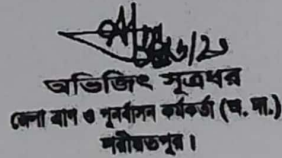 অভিজিৎ সূত্রধর
জেলা ত্রাণ ও পুনর্বাসন কর্মকর্তা (ভ. প্রা.)
শরীয়তপুর।